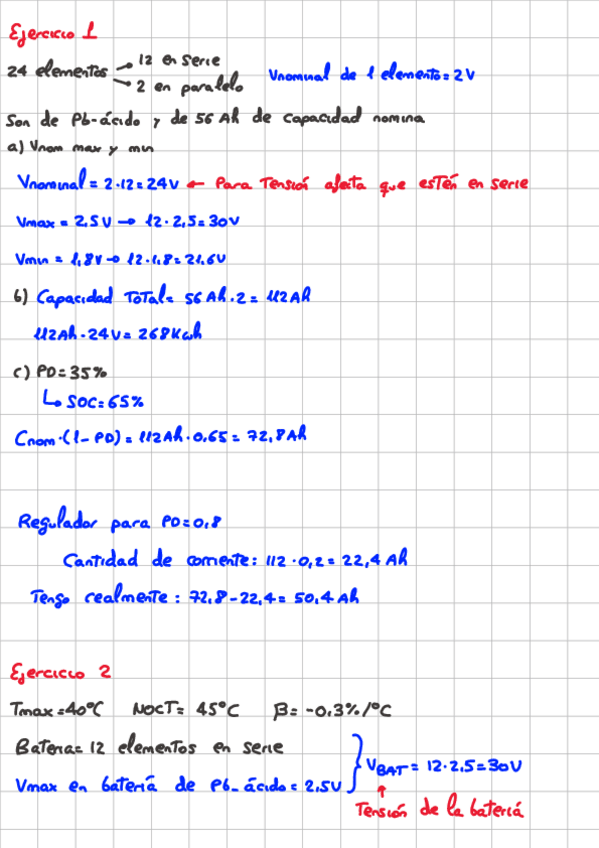 Ejercicio 1
24 elementos → 12 en serie
→ 2 en paralelo
Vnominal de 1 elemento = 2V
Son de Pb-ácido y de 56 Ah de capacidad nomina
a) Vnom max y min
Vnominal = 2·12 = 24V ← Para Tensión afecta que estén en serie
Vmax = 2.5V → 12·2,5 = 30V
Vmin = 1,8V → 12·1,8 = 21.6V
b) Capacidad Total = 56 Ah·2 = 112Ah
112Ah·24V = 268Kwh
c) PD = 35%
↳ SOC = 65%
Cnom·(1-PD) = 112Ah·0.65 = 72,8Ah
Regulador para PD = 0,8
Cantidad de corriente: 112·0,2 = 22,4 Ah
Tengo realmente: 72.8-22,4 = 50,4 Ah
Ejercicio 2
Tmax = 40°C NOCT = 45°C β = -0.3%/°C
Bateria = 12 elementos en serie
Vmax en batería de Pb-ácido = 2.5V
VBAT = 12·2.5 = 30V
↑
Tensión de la batería